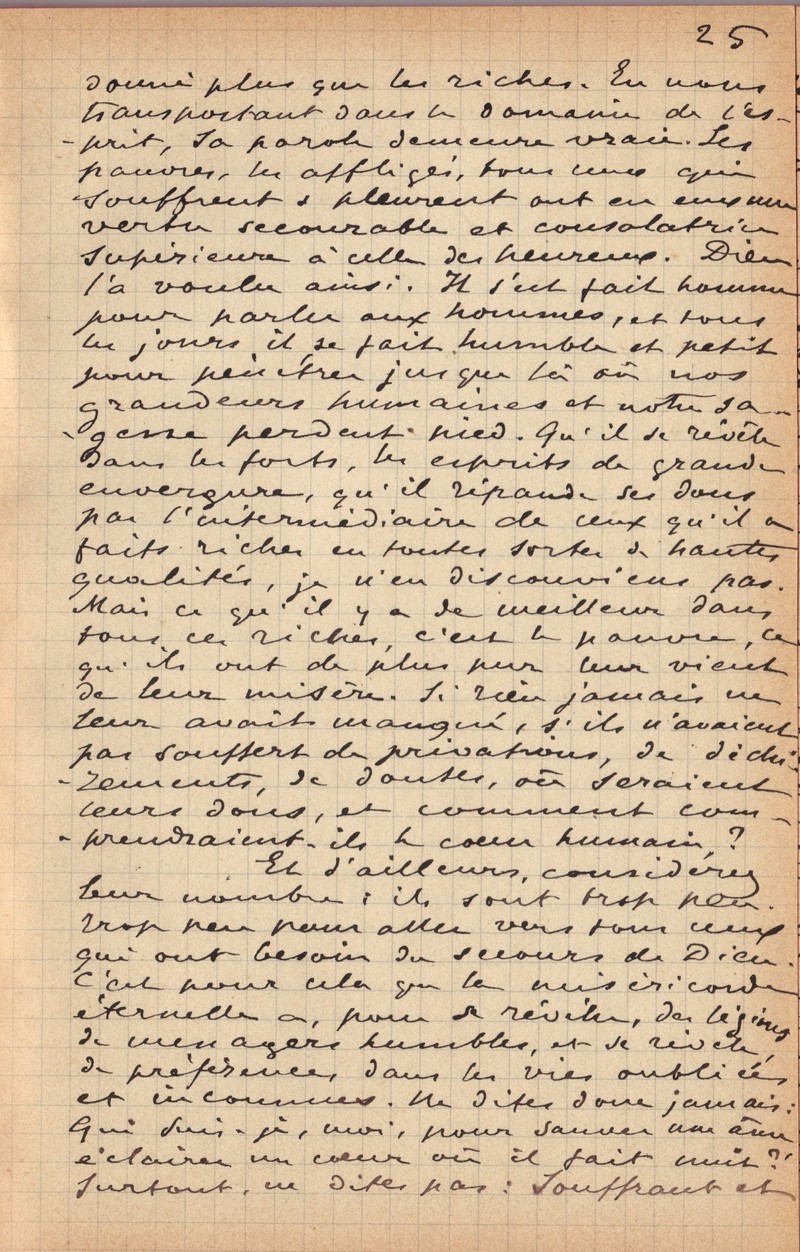 25
donné plus que les riches. En nous
transportant dans le domaine de l'es-
-prit, sa parole demeure vraie. Les
pauvres, les affligés, tous ceux qui
souffrent & pleurent ont en eux une
vertu secourable et consolatrice
supérieure à celle des heureux. Dieu
l'a voulu ainsi. Il s'est fait homme
pour parler aux hommes, et tous
les jours il se fait humble et petit
pour pénétrer jusque là où nos
grandeurs humaines et notre sa-
-gesse perdent pied. Qu'il se révèle
dans les forts, les esprits de grande
envergure, qu'il répande ses dons
par l'intermédiaire de ceux qu'il a
faits riches en toutes sortes de hautes
qualités, je n'en disconviens pas.
Mais ce qu'il y a de meilleur dans
tous ces riches, c'est le pauvre, ce
qu'ils ont de plus pur leur vient
de leur misère. Si rien jamais ne
leur avait manqué, s'ils n'avaient
pas souffert de privations, de déchi-
-rements, de doutes, où seraient
leurs dons, et comment com-
-prendraient-ils le cœur humain ?
Et d'ailleurs, considérez
leur nombre : ils sont trop peu.
trop peu pour aller vers tous ceux
qui ont besoin du secours de Dieu.
C'est pour cela que la miséricorde
éternelle a, pour se révéler, des légions
de messagers humbles, et se révèle,
de préférence, dans les vies oubliées
et inconnues. Ne dites donc jamais :
Qui suis-je, moi, pour sauver une âme
éclairer un cœur où il fait nuit ?
Surtout, ne dites pas : Souffrant et